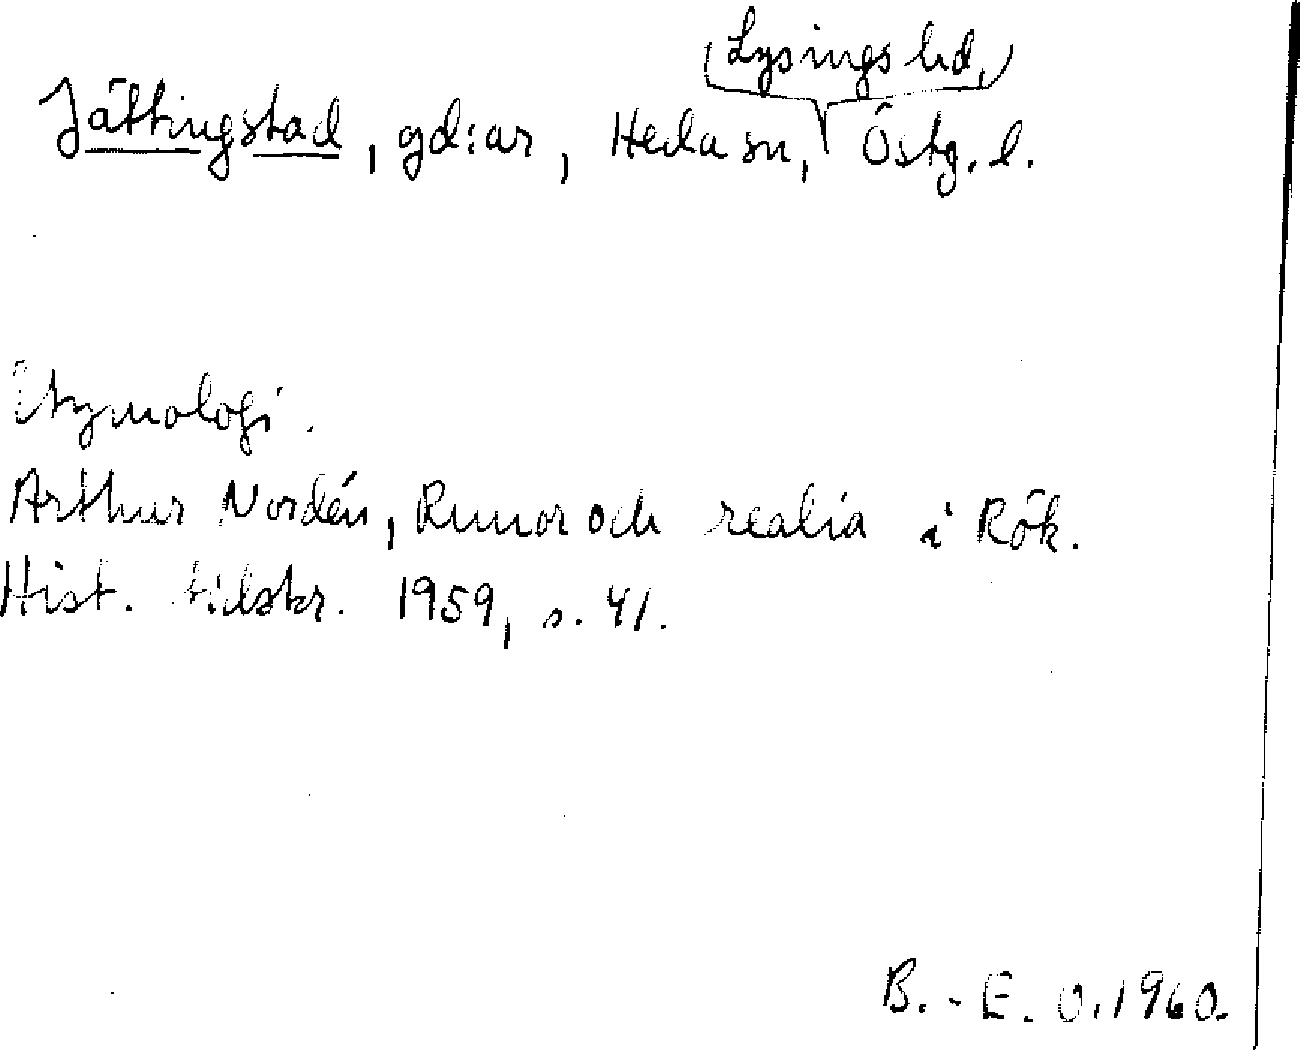 Lysings hd,
Jättingstad, gd:ar, Heda sn, Östg. l.
Etymologi.
Arthur Nordén, Runor och realia i Rök.
Hist. tidskr. 1959, s. 41.
B.-E. O. 1960.